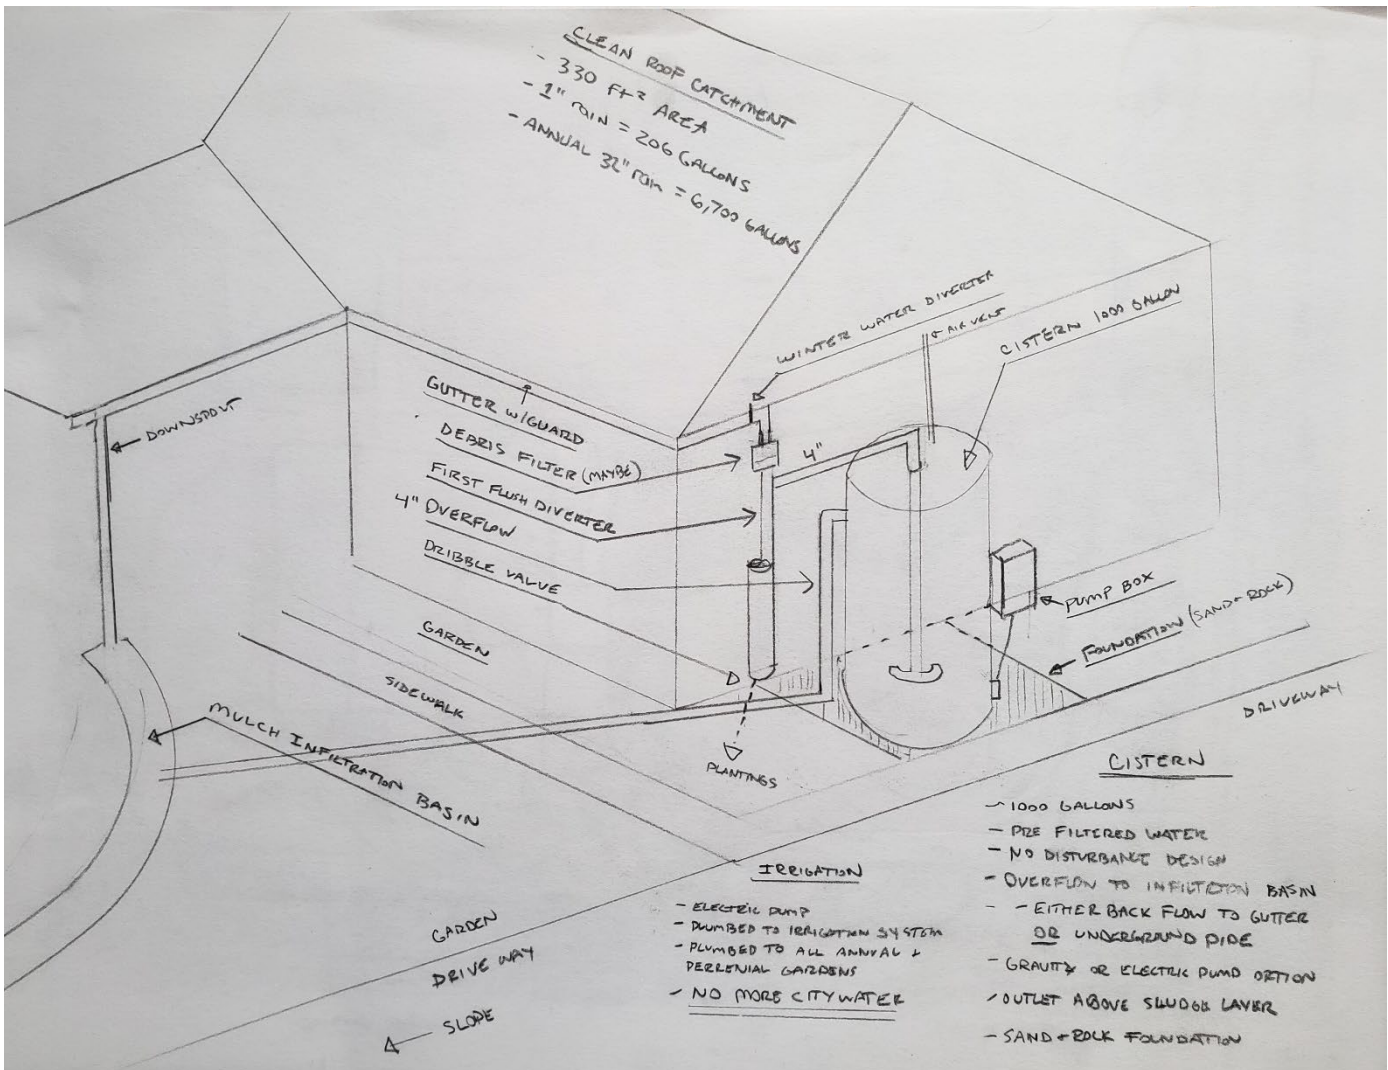 CLEAN ROOF CATCHMENT
- 330 Ft² AREA
- 1" rain = 206 GALLONS
- ANNUAL 32" rain = 6,700 GALLONS
WINTER WATER DIVERTER
AIR VENT
CISTERN 1000 GALLON
DOWNSPOUT
GUTTER W/GUARD
DEBRIS FILTER (MAYBE)
FIRST FLUSH DIVERTER
4" OVERFLOW
DRIBBLE VALUE
4"
GARDEN
SIDEWALK
MULCH INFILTRATION BASIN
PLANTINGS
PUMP BOX
FOUNDATION (SAND + ROCK)
DRIVEWAY
GARDEN
DRIVE WAY
SLOPE
IRRIGATION
- ELECTRIC PUMP
- PLUMBED TO IRRIGATION SYSTEM
- PLUMBED TO ALL ANNUAL +
PERRENIAL GARDENS
- NO MORE CITY WATER
CISTERN
- 1000 GALLONS
- PRE FILTERED WATER
- NO DISTURBANCE DESIGN
- OVERFLOW TO INFILTRTON BASIN
- - EITHER BACK FLOW TO GUTTER
OR UNDERGROUND PIPE
- GRAVITY OR ELECTRIC PUMP OPTION
- OUTLET ABOVE SLUDGE LAYER
- SAND + ROCK FOUNDATION